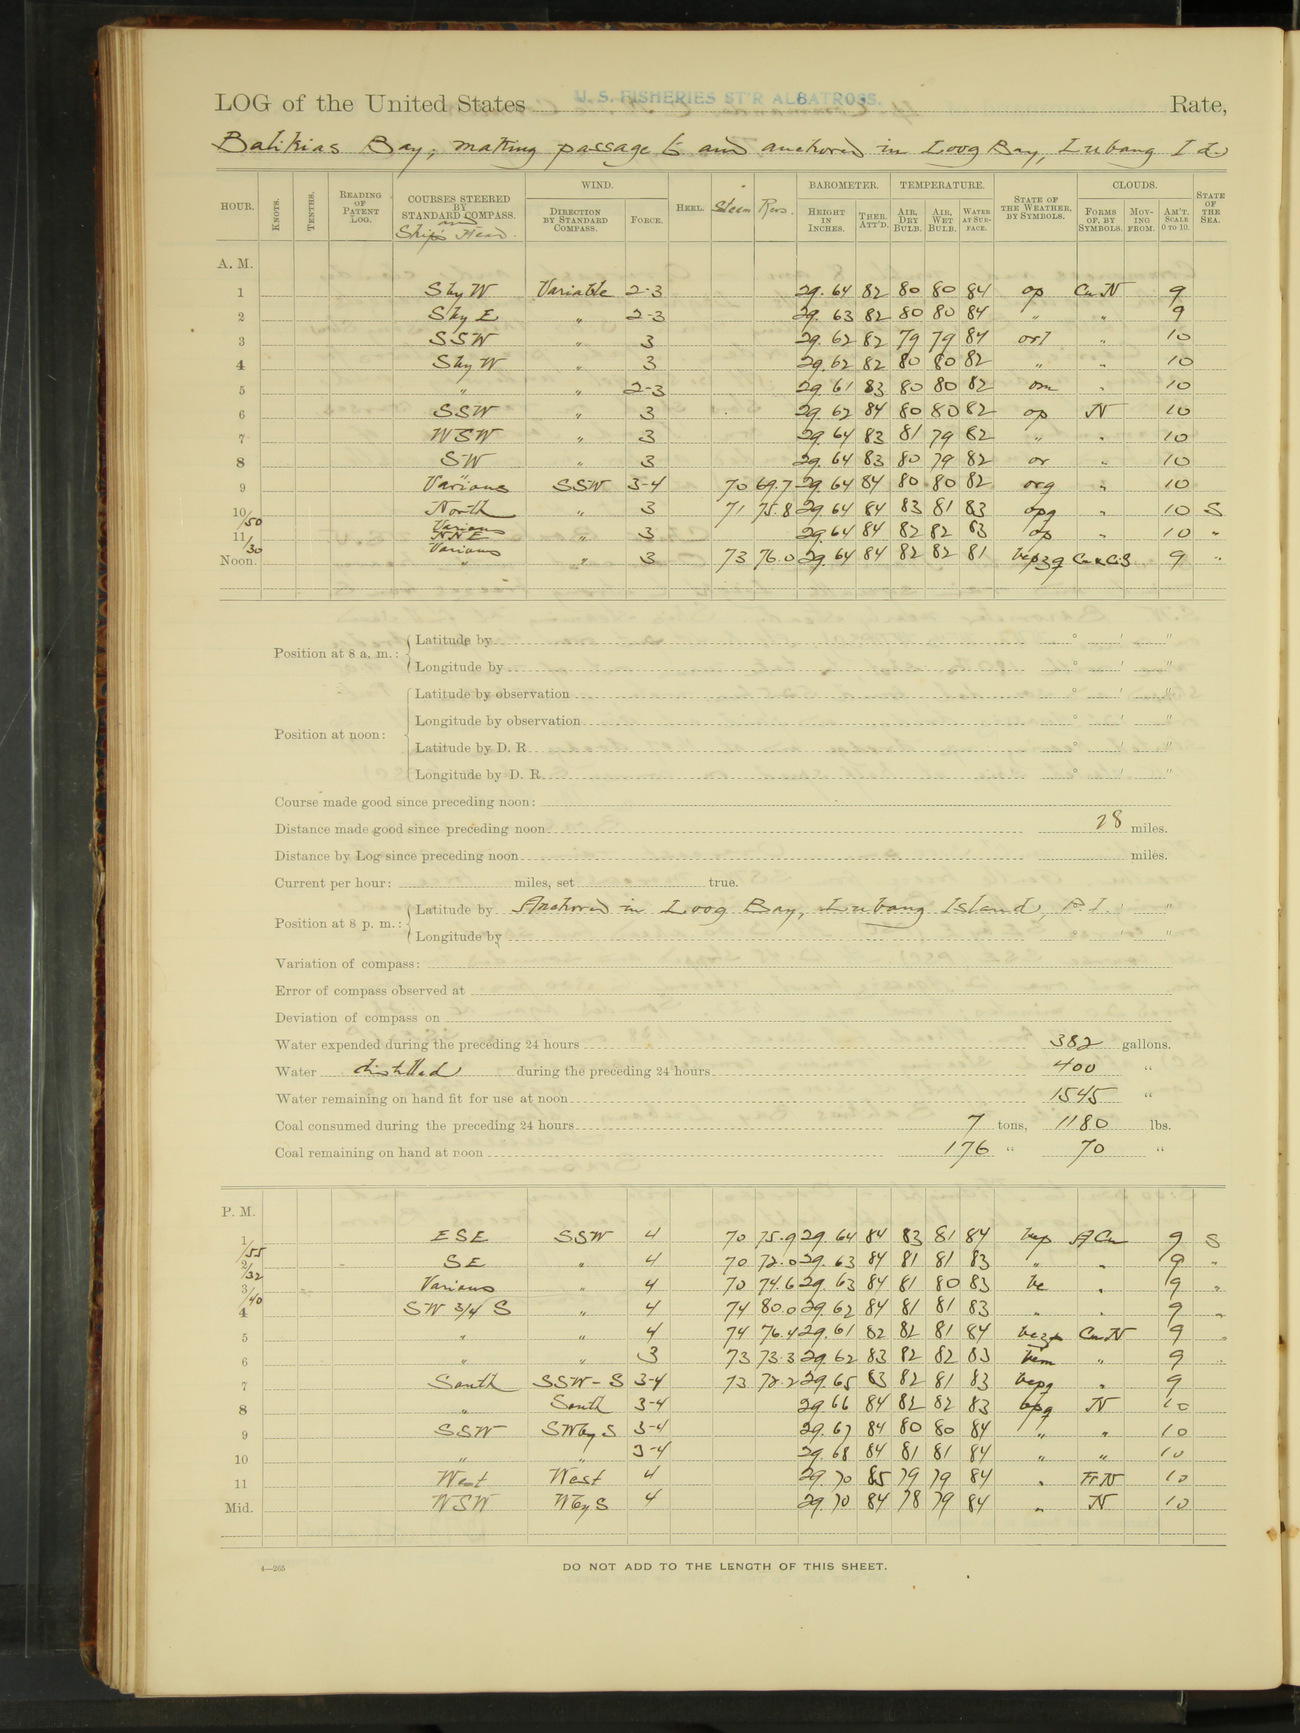 LOG of the United States U. S. FISHERIES ST'R ALBATROSS. Rate,
Balikias Bay, making passage to and anchored in Loog Bay, Lubang Id.
HOUR. KNOTS. TENTHS. READING OF PATENT LOG. COURSES STEERED BY STANDARD COMPASS. and Ship's Head. WIND. DIRECTION BY STANDARD COMPASS. FORCE. HEEL. Steam Revs. BAROMETER. HEIGHT IN INCHES. THER. ATT'D. TEMPERATURE. AIR, DRY BULB. AIR, WET BULB. WATER AT SURFACE. STATE OF THE WEATHER, BY SYMBOLS. CLOUDS. FORMS OF, BY SYMBOLS. MOVING FROM. AM'T. SCALE 0 TO 10. STATE OF THE SEA.
A. M.
1 S by W Variable 2-3 29.64 82 80 80 84 op Cu-N 9
2 S by E " 2-3 29.63 82 80 80 84 " " 9
3 SSW " 3 29.62 82 79 79 84 orl " 10
4 S by W " 3 29.62 82 80 80 82 " " 10
5 " " 2-3 29.61 83 80 80 82 om " 10
6 SSW " 3 29.62 84 80 80 82 op N 10
7 WSW " 3 29.64 83 81 79 82 " " 10
8 SW " 3 29.64 83 80 79 82 or " 10
9 Various SSW 3-4 70 69.7 29.64 84 80 80 82 org " 10
10 North " 3 71 75.8 29.64 84 83 81 83 opq " 10 S
/50 Various
11 NNE " 3 29.64 84 82 82 83 op " 10 "
/30 Various
Noon. " " 3 73 76.0 29.64 84 82 82 81 9 "
Position at 8 a. m.: Latitude by ° ' "
Longitude by ° ' "
Position at noon: Latitude by observation ° ' "
Longitude by observation ° ' "
Latitude by D. R. ° ' "
Longitude by D. R. ° ' "
Course made good since preceding noon:
Distance made good since preceding noon 28 miles.
Distance by Log since preceding noon miles.
Current per hour: miles, set true.
Position at 8 p. m.: Latitude by Anchored in Loog Bay, Lubang Island, P.I. ' "
Longitude by ° ' "
Variation of compass:
Error of compass observed at
Deviation of compass on
Water expended during the preceding 24 hours 382 gallons.
Water distilled during the preceding 24 hours 400 "
Water remaining on hand fit for use at noon 1545 "
Coal consumed during the preceding 24 hours 7 tons, 1180 lbs.
Coal remaining on hand at noon 176 " 70 "
P. M.
1 ESE SSW 4 70 75.9 29.64 84 83 81 84 bcp A Cu 9 S
/55
2 SE " 4 70 72.0 29.63 84 81 81 83 " " 9 "
/32
3 Various " 4 70 74.6 29.63 84 81 80 83 bc " 9 "
/40
4 SW 3/4 S " 4 74 80.0 29.62 84 81 81 83 " " 9 "
5 " " 4 74 76.4 29.61 82 82 81 84 Cu-N 9 "
6 " " 3 73 73.3 29.62 83 82 82 83 bcm " 9 "
7 South SSW-S 3-4 73 72.2 29.65 83 82 81 83 bcpq " 9
8 " South 3-4 29.66 84 82 82 83 opq N 10
9 SSW SW by S 3-4 29.67 84 80 80 84 " " 10
10 " " 3-4 29.68 84 81 81 84 " " 10
11 West West 4 29.70 85 79 79 84 " Fr-N 10
Mid. WSW W by S 4 29.70 84 78 79 84 " N 10
4—265
DO NOT ADD TO THE LENGTH OF THIS SHEET.